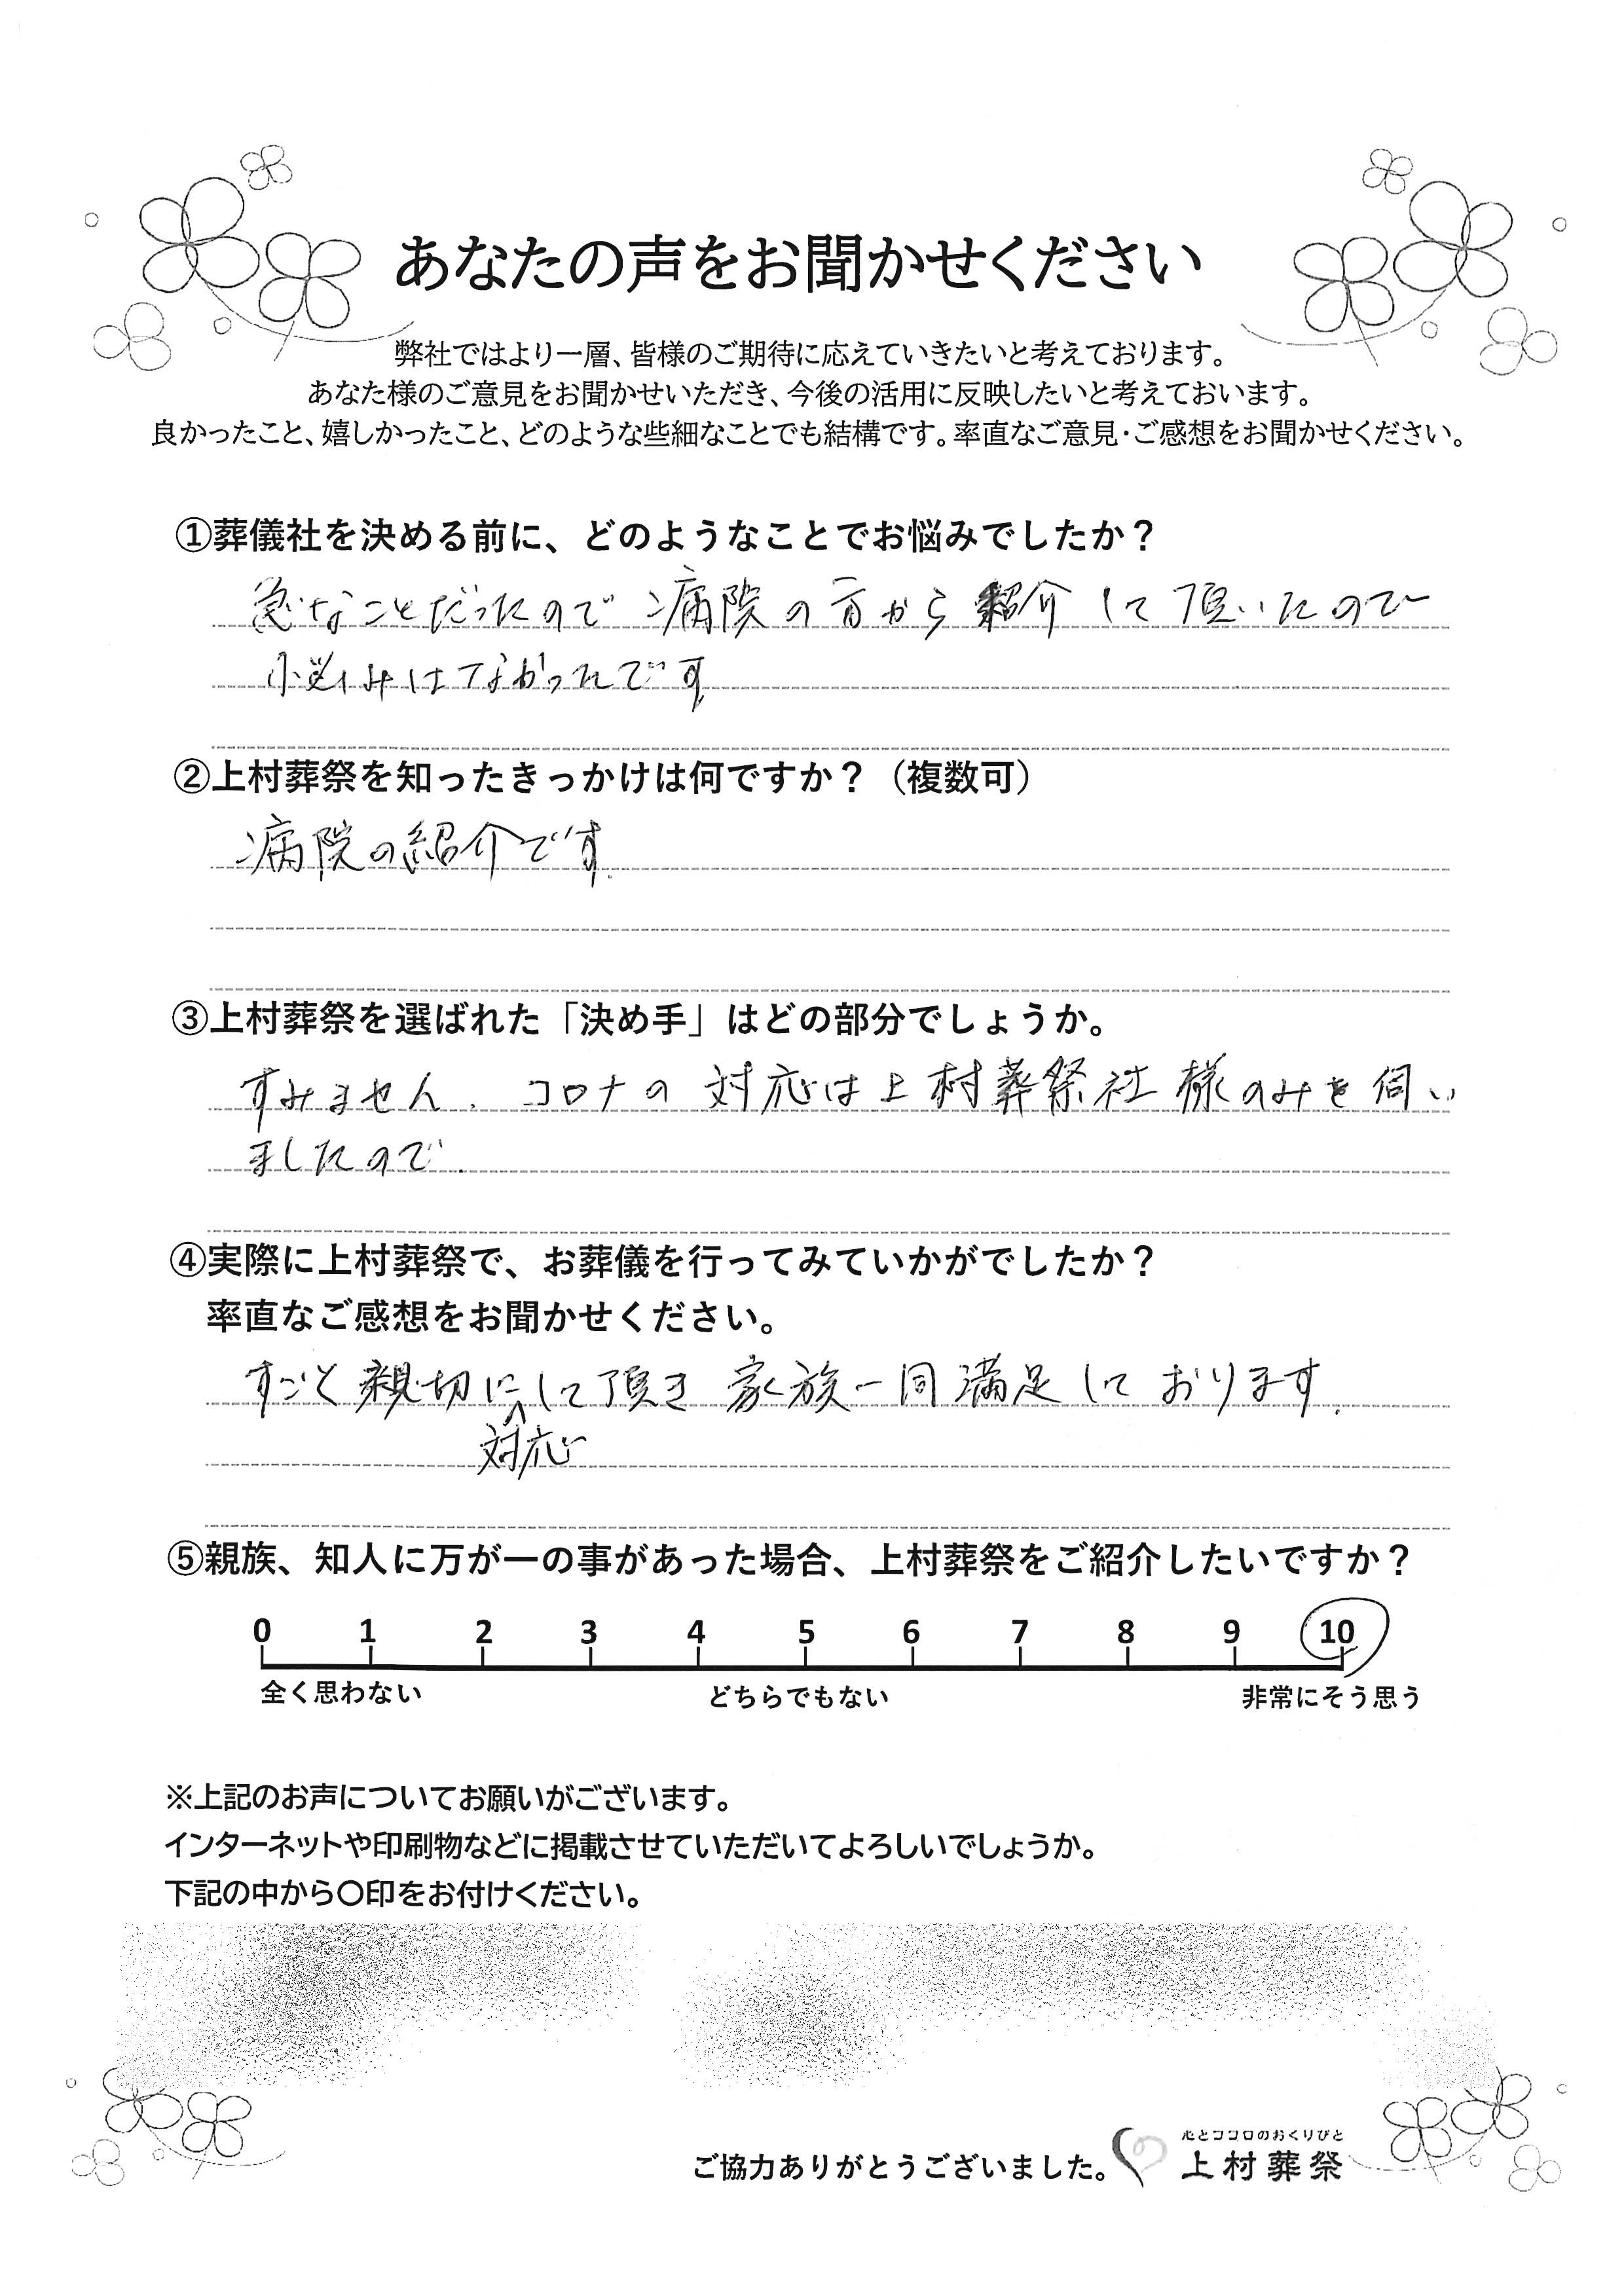 あなたの声をお聞かせください
弊社ではより一層、皆様のご期待に応えていきたいと考えております。
あなた様のご意見をお聞かせいただき、今後の活用に反映したいと考えておいます。
良かったこと、嬉しかったこと、どのような些細なことでも結構です。率直なご意見・ご感想をお聞かせください。
①葬儀社を決める前に、どのようなことでお悩みでしたか？
急なことだったので 病院の方から 紹介して頂いたので
悩みはなかったです
②上村葬祭を知ったきっかけは何ですか？（複数可）
病院の紹介です.
③上村葬祭を選ばれた「決め手」はどの部分でしょうか。
すみません. コロナの 対応は上村葬祭社様のみを伺い
ましたので.
④実際に上村葬祭で、お葬儀を行ってみていかがでしたか？
率直なご感想をお聞かせください。
すごく親切にして頂き 家族一同満足しております.
対応
⑤親族、知人に万が一の事があった場合、上村葬祭をご紹介したいですか？
0 1 2 3 4 5 6 7 8 9 10
全く思わない どちらでもない 非常にそう思う
※上記のお声についてお願いがございます。
インターネットや印刷物などに掲載させていただいてよろしいでしょうか。
下記の中から〇印をお付けください。
心とココロのおくりびと
ご協力ありがとうございました。 上村葬祭